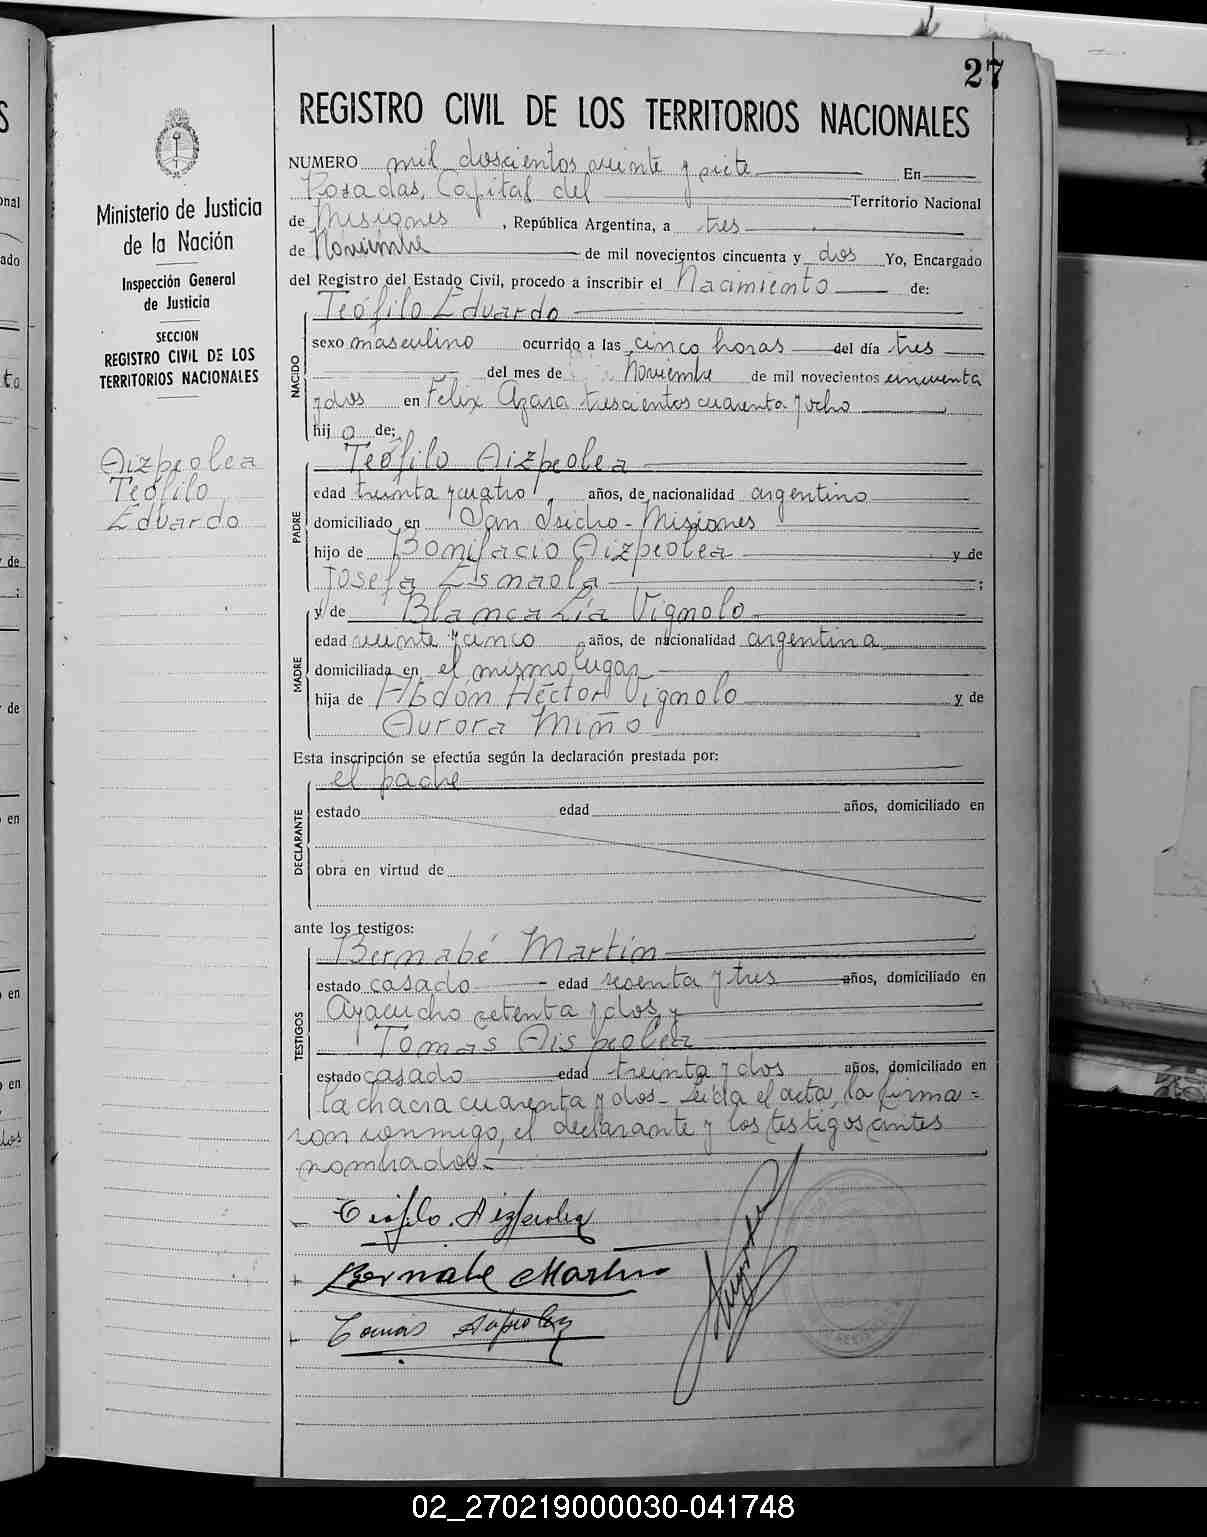 27
REGISTRO CIVIL DE LOS TERRITORIOS NACIONALES
Ministerio de Justicia
de la Nación
Inspección General
de Justicia
SECCION
REGISTRO CIVIL DE LOS
TERRITORIOS NACIONALES
Aizpeolea
Teófilo
Eduardo
NUMERO mil doscientos veinte y siete En
Posadas, Capital del Territorio Nacional
de Misiones, República Argentina, a tres
de Noviembre de mil novecientos cincuenta y dos Yo, Encargado
del Registro del Estado Civil, procedo a inscribir el Nacimiento de:
NACIDO
Teófilo Eduardo
sexo masculino ocurrido a las cinco horas del día tres
del mes de Noviembre de mil novecientos cincuenta
y dos en Félix Azara trescientos cuarenta y ocho
hijo de:
PADRE
Teófilo Aizpeolea
edad treinta y cuatro años, de nacionalidad argentino
domiciliado en San Isidro - Misiones
hijo de Bonifacio Aizpeolea y de
Josefa Esnaola ;
MADRE
y de Blanca Lía Vignolo
edad veinte y cinco años, de nacionalidad argentina
domiciliada en el mismo lugar
hija de Abdon Héctor Vignolo y de
Aurora Miño
Esta inscripción se efectúa según la declaración prestada por:
DECLARANTE
el padre
estado edad años, domiciliado en
obra en virtud de
ante los testigos:
TESTIGOS
Bernabé Martín
estado casado edad sesenta y tres años, domiciliado en
Ayacucho setenta y dos, y
Tomas Aispeolea
estado casado edad treinta y dos años, domiciliado en
la chacra cuarenta y dos - Leída el acta, la firma=
ron conmigo, el declarante y los testigos antes
nombrados.-
Teófilo Aizpeolea
Bernabe Martin
Tomás Aispeolea
02_270219000030-041748